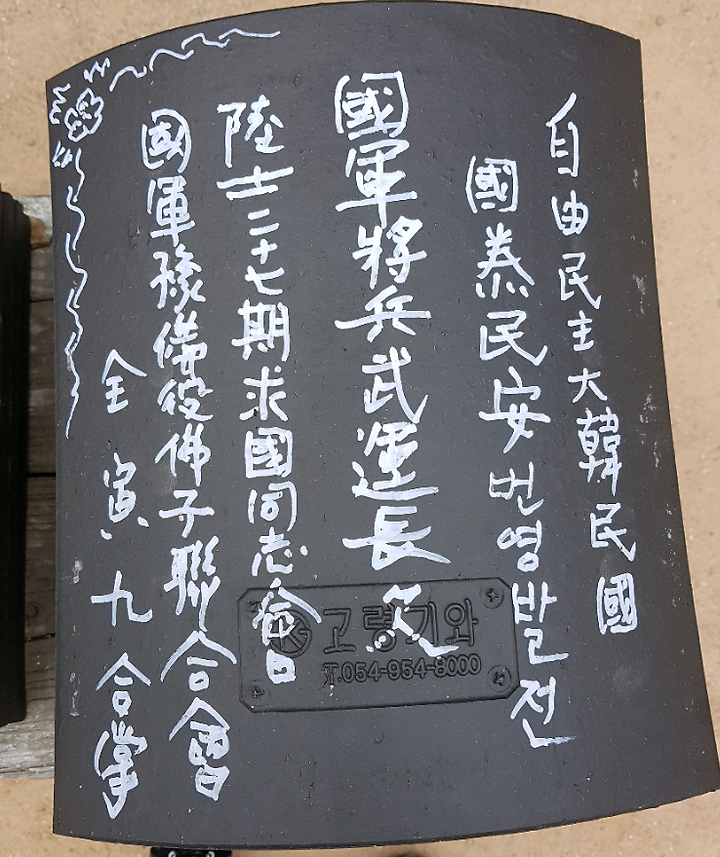 自由民主大韓民國
國泰民安 번영발전
國軍將兵武運長久
陸士二十七期求國同志會
國軍豫備役佛子聯合會
全寅九 合掌
고령기와
T.054-954-8000